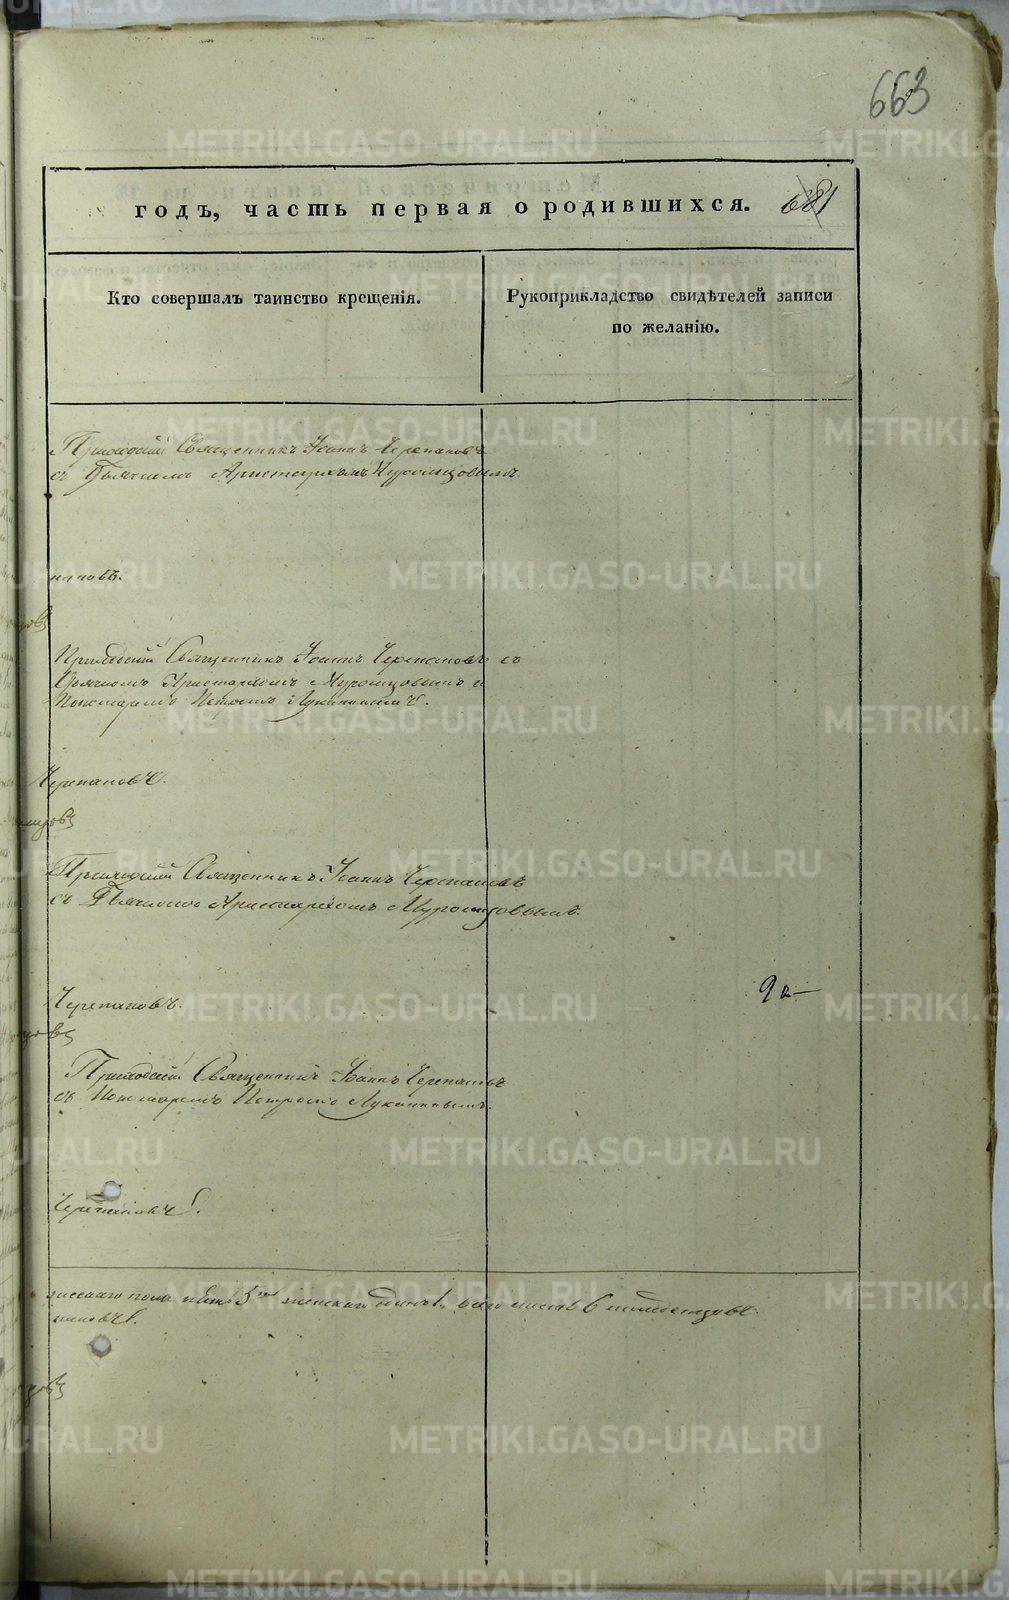 663
годъ, часть первая о родившихся. 681
Кто совершалъ таинство крещенія.
Рукоприкладство свидѣтелей записи
по желанію.
Приходскій Священникъ Іоаннъ Черепановъ
съ Дьячкомъ Аристархомъ Муромцовымъ.
пановъ.
Приходскій Священникъ Іоаннъ Черепановъ съ
Дьячкомъ Аристархомъ Муромцовымъ и
Пономаремъ Петромъ Лукинымъ.
Черепановъ.
Приходскій Священникъ Іоаннъ Черепановъ
съ Дьячкомъ Аристархомъ Муромцовымъ.
Черепановъ.
Приходскій Священникъ Іоаннъ Черепановъ
съ Пономаремъ Петромъ Лукинымъ.
Черепановъ.
пола пять 5 женска одинъ 1, всего шесть 6
пановъ.
METRIKI.GASO-URAL.RU